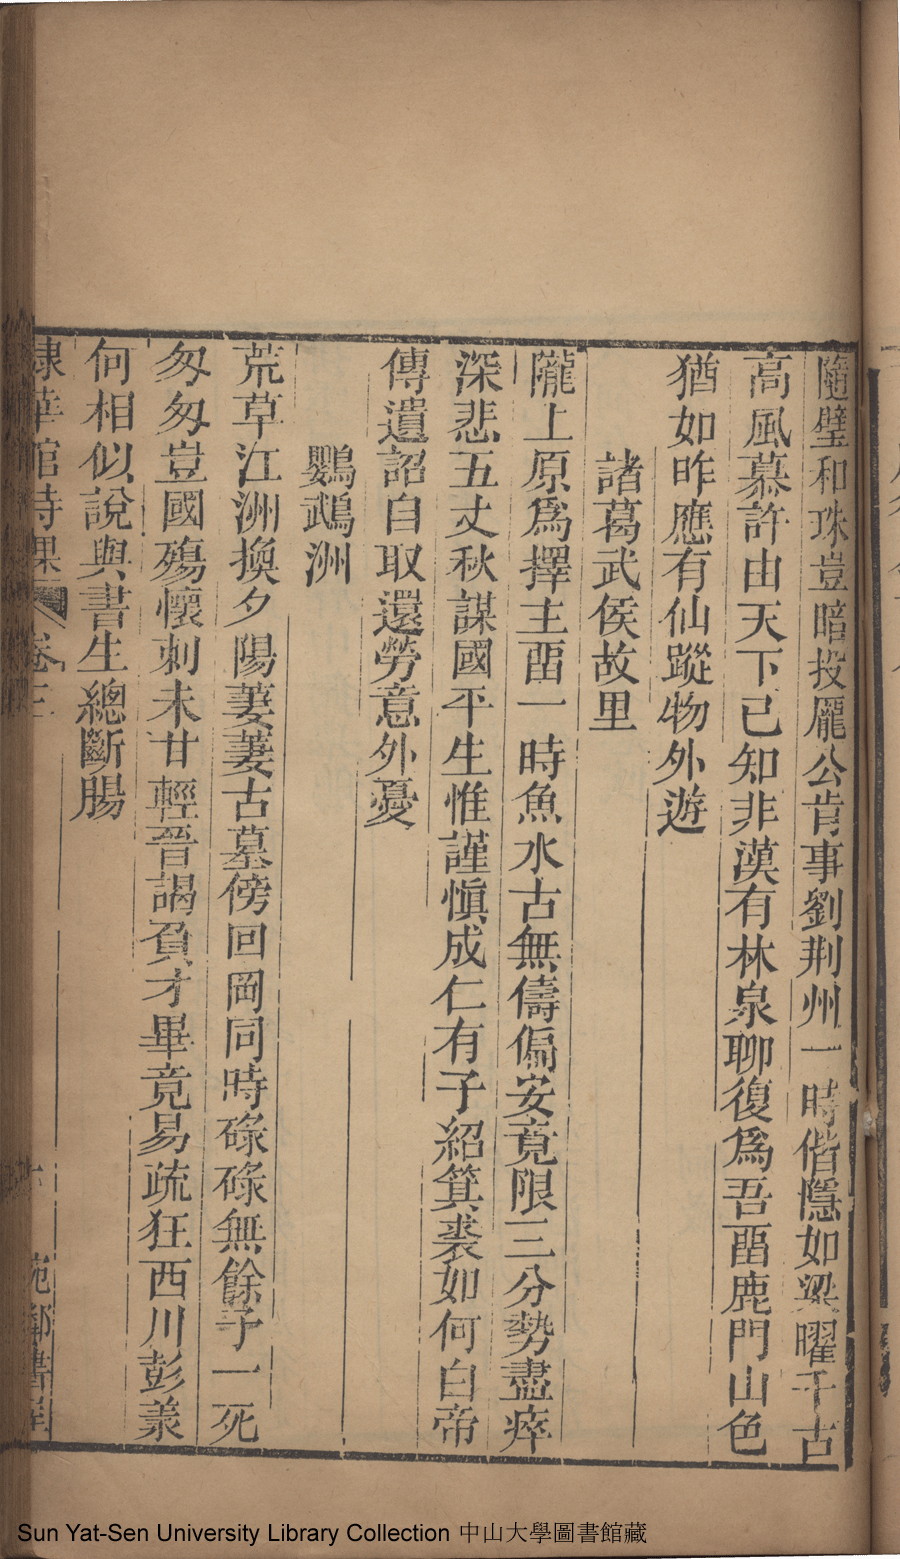 隨璧和珠豈暗投龐公肯事劉荆州一時偕隱如梁曜千古
高風慕許由天下已知非漢有林泉聊復爲吾畱鹿門山色
猶如昨應有仙蹤物外遊
諸葛武侯故里
隴上原爲擇主畱一時魚水古無儔偏安竟限三分勢盡瘁
深悲五丈秋謀國平生惟謹愼成仁有子紹箕裘如何白帝
傳遺詔自取還勞意外憂
鸚鵡洲
荒草江洲換夕陽萋萋古墓傍回岡同時碌碌無餘子一死
匆匆豈國殤懷刺未甘輕晉謁負才畢竟易疏狂西川彭羕
何相似說與書生總斷腸
棣華館詩課 卷三 宛鄰書屋
Sun Yat-Sen University Library Collection 中山大學圖書館藏